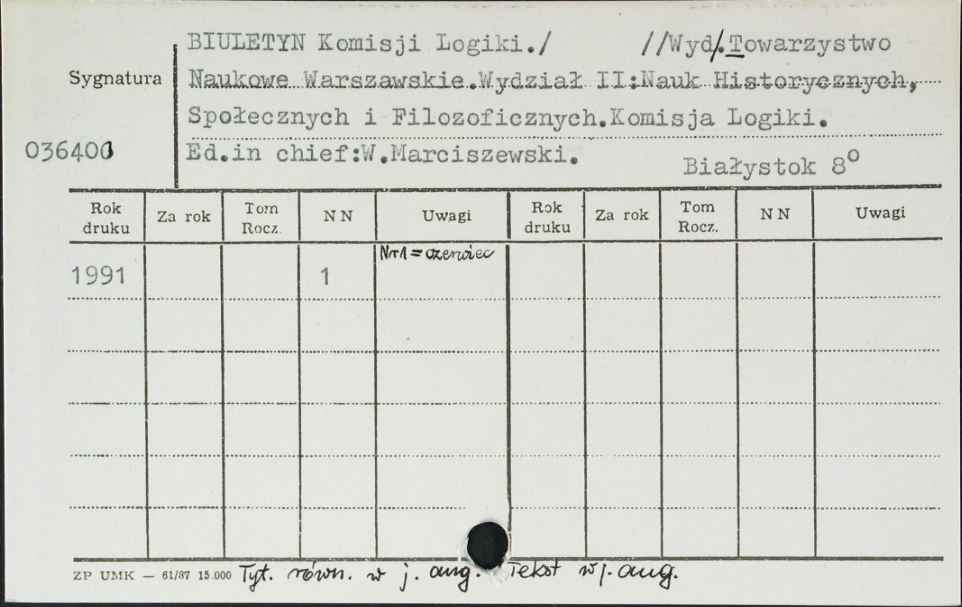 BIULETYN Komisji Logiki./ //Wyd/.Towarzystwo
Sygnatura Naukowe Warszawskie.Wydział II:Nauk Historycznych,
Społecznych i Filozoficznych.Komisja Logiki.
036400 Ed.in chief:W.Marciszewski.
Białystok 8°
Rok druku Za rok Tom Rocz. NN Uwagi Rok druku Za rok Tom Rocz. NN Uwagi
Nr1=czerwiec
1991 1
ZP UMK — 61/87 15.000 Tyt. równ. w j. ang. Tekst w j. ang.